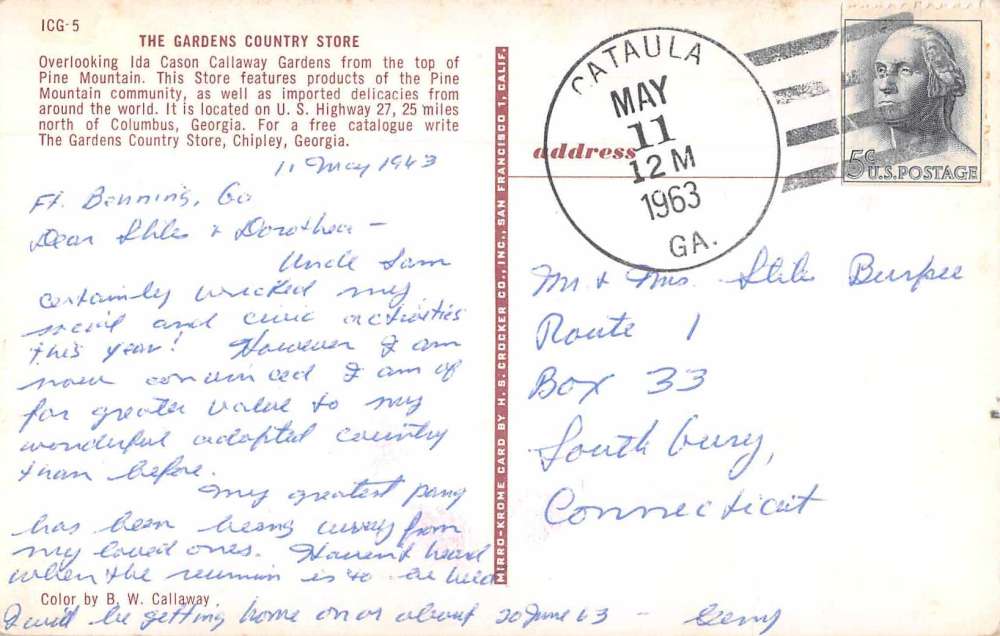 ICG-5
THE GARDENS COUNTRY STORE
Overlooking Ida Cason Callaway Gardens from the top of
Pine Mountain. This Store features products of the Pine
Mountain community, as well as imported delicacies from
around the world. It is located on U. S. Highway 27, 25 miles
north of Columbus, Georgia. For a free catalogue write
The Gardens Country Store, Chipley, Georgia.
11 May 1963
Ft. Benning, Ga
Dear Stiles & Dorothea —
Uncle Sam
certainly wrecked my
social and civic activities
this year! However I am
now convinced I am of
far greater value to my
wonderful adopted country
than before.
My greatest pang
has been being away from
my loved ones. Haven't heard
when the reunion is to be held
Color by B. W. Callaway
I will be getting home on or about 20 June 63 —
MIRRO-KROME CARD BY H. S. CROCKER CO., INC., SAN FRANCISCO 1, CALIF.
address
CATAULA
MAY
11
12 M
1963
GA.
5¢
U.S. POSTAGE
Mr. & Mrs. Stiles Burpee
Route 1
Box 33
Southbury,
Connecticut